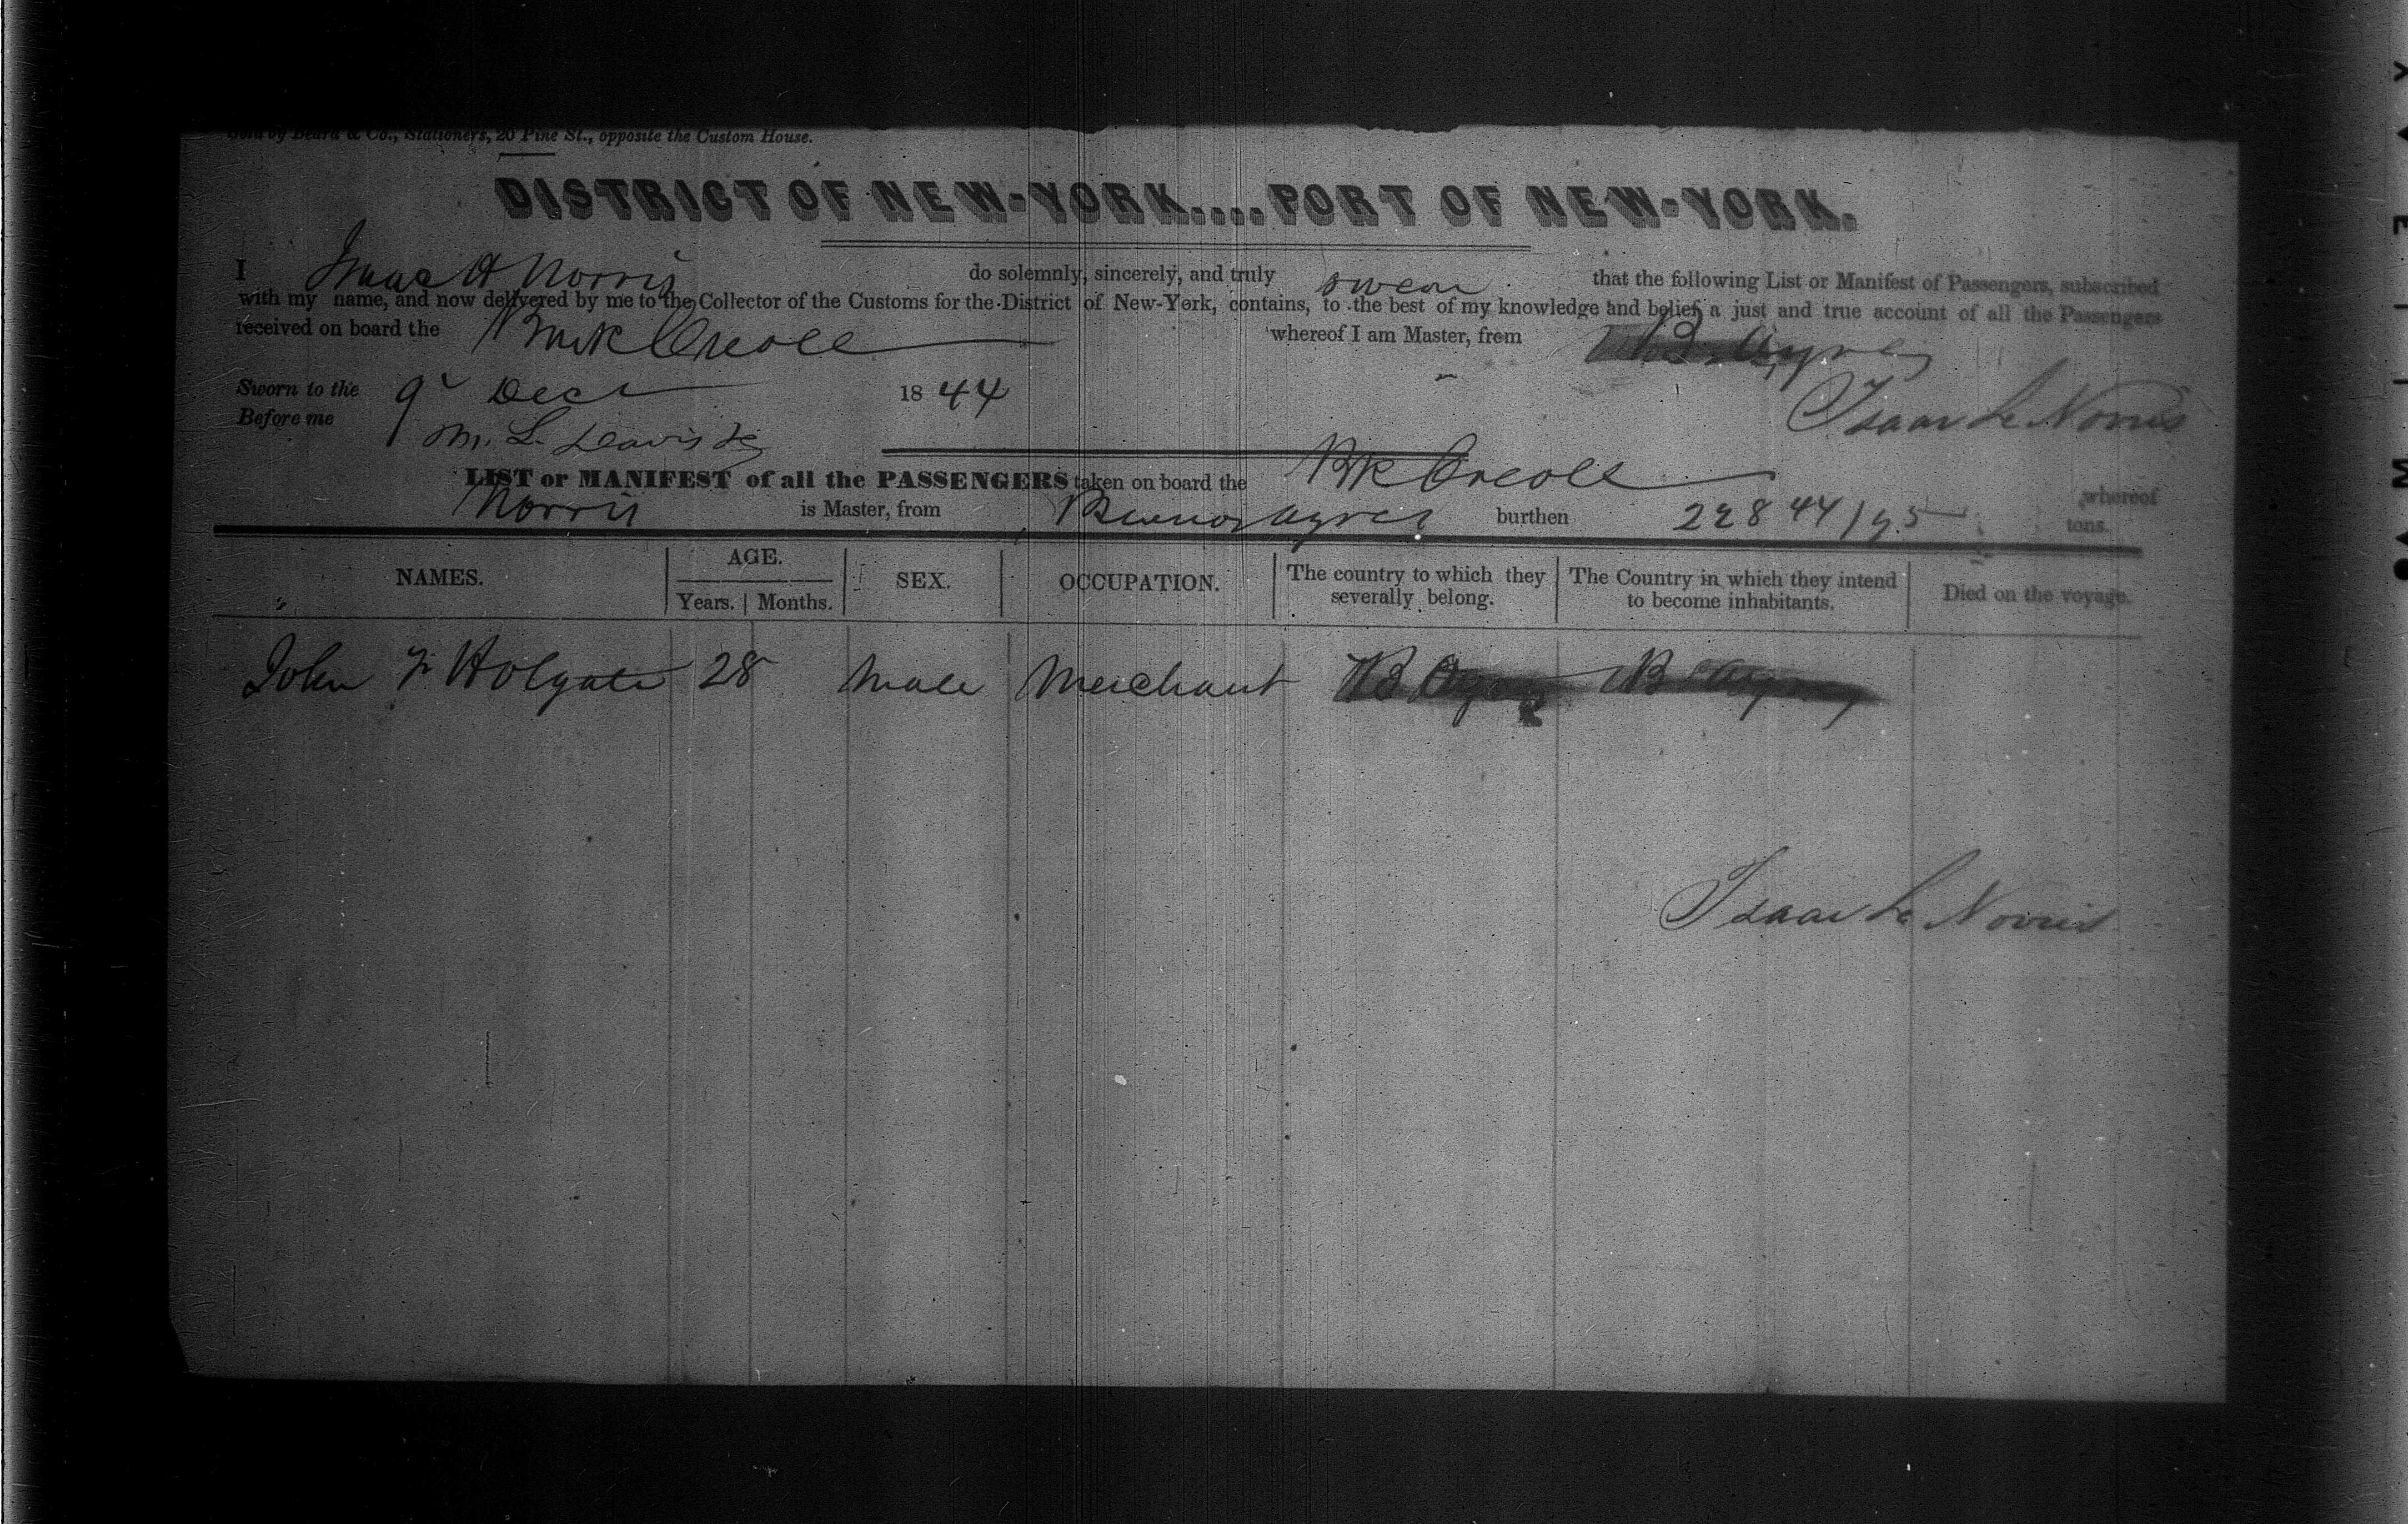 Sold by Beard & Co., Stationers, 20 Pine St., opposite the Custom House.
DISTRICT OF NEW-YORK....PORT OF NEW-YORK.
I Isaac H Norris do solemnly, sincerely, and truly swear that the following List or Manifest of Passengers, subscribed
with my name, and now delivered by me to the Collector of the Customs for the District of New-York, contains, to the best of my knowledge and belief, a just and true account of all the Passengers
received on board the Bark Creole whereof I am Master, from B. Ayres
Sworn to the 9 Dec 1844
Before me M. L. Davis
Isaac Norris
LIST or MANIFEST of all the PASSENGERS taken on board the Bk Creole whereof
Norris is Master, from Buenos Ayres burthen 228 44/95 tons.
NAMES. AGE. SEX. OCCUPATION. The country to which they severally belong. The Country in which they intend to become inhabitants. Died on the voyage.
Years. Months.
John Holgate 28 Male Merchant B Ayres B Ayres
Isaac Norris